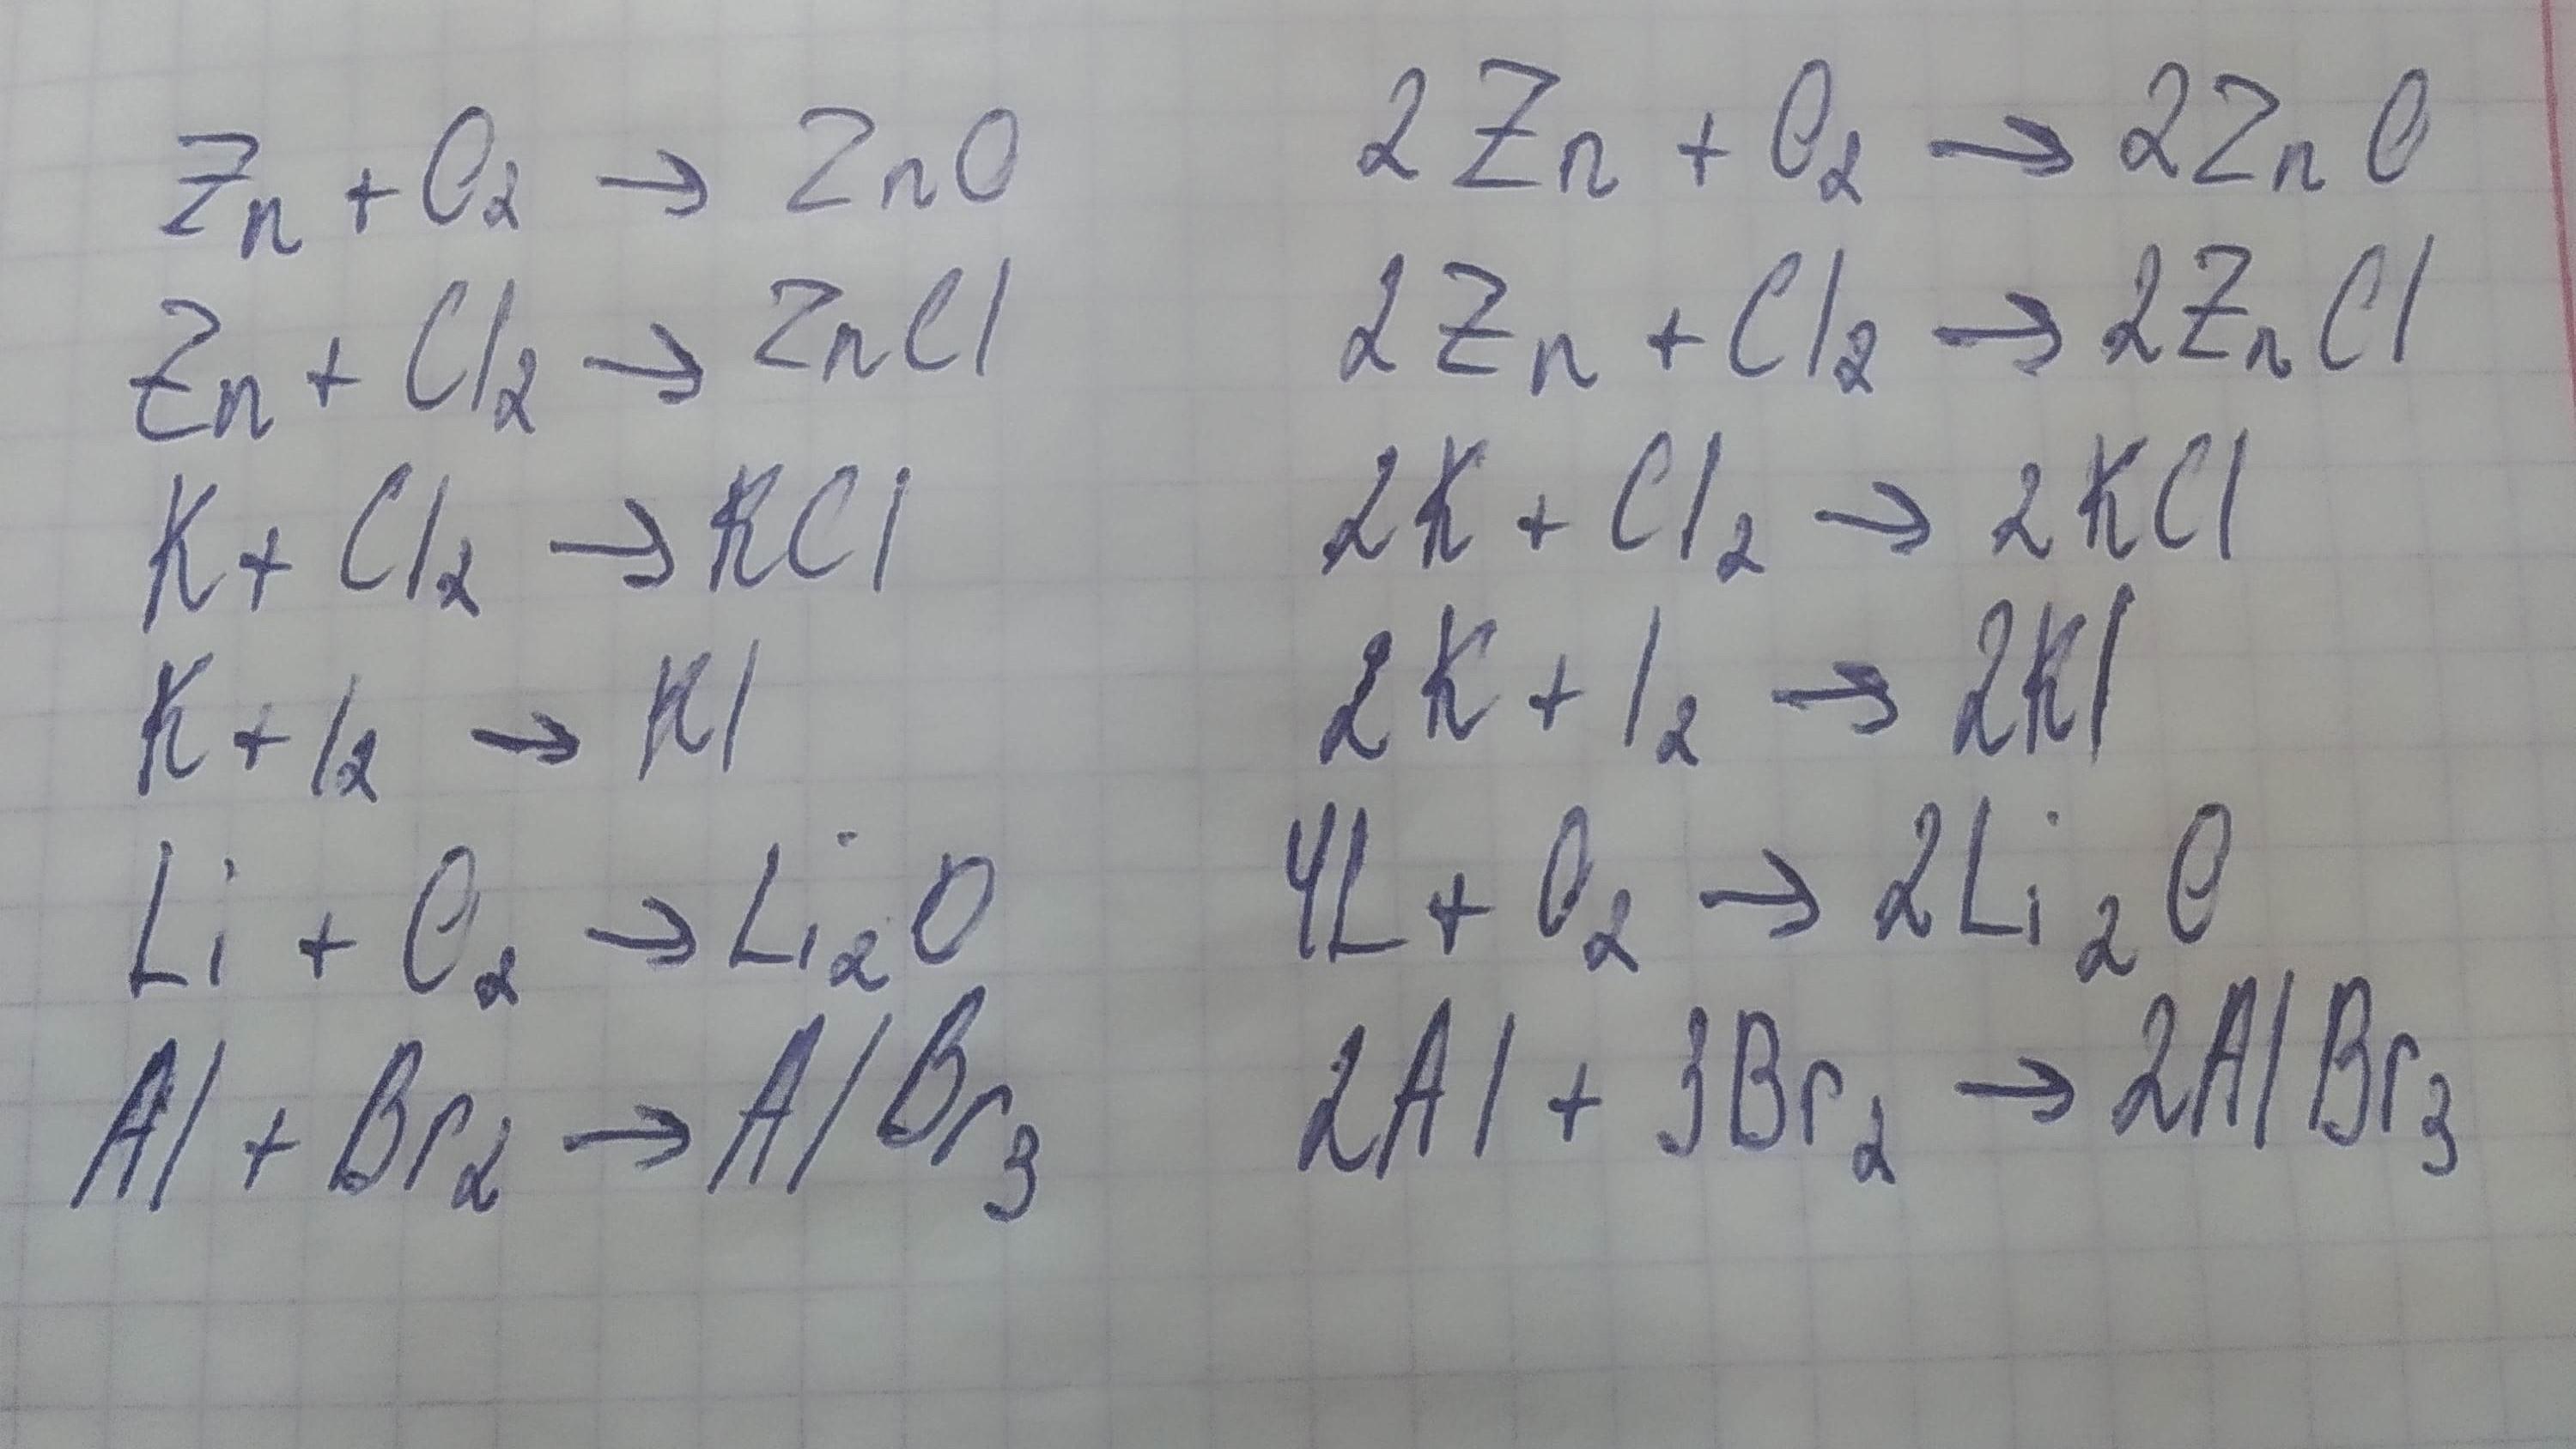 Zn + O₂ → ZnO
Zn + Cl₂ → ZnCl
K + Cl₂ → KCl
K + I₂ → KI
Li + O₂ → Li₂O
Al + Br₂ → AlBr₃
2Zn + O₂ → 2ZnO
2Zn + Cl₂ → 2ZnCl
2K + Cl₂ → 2KCl
2K + I₂ → 2KI
4L + O₂ → 2Li₂O
2Al + 3Br₂ → 2AlBr₃